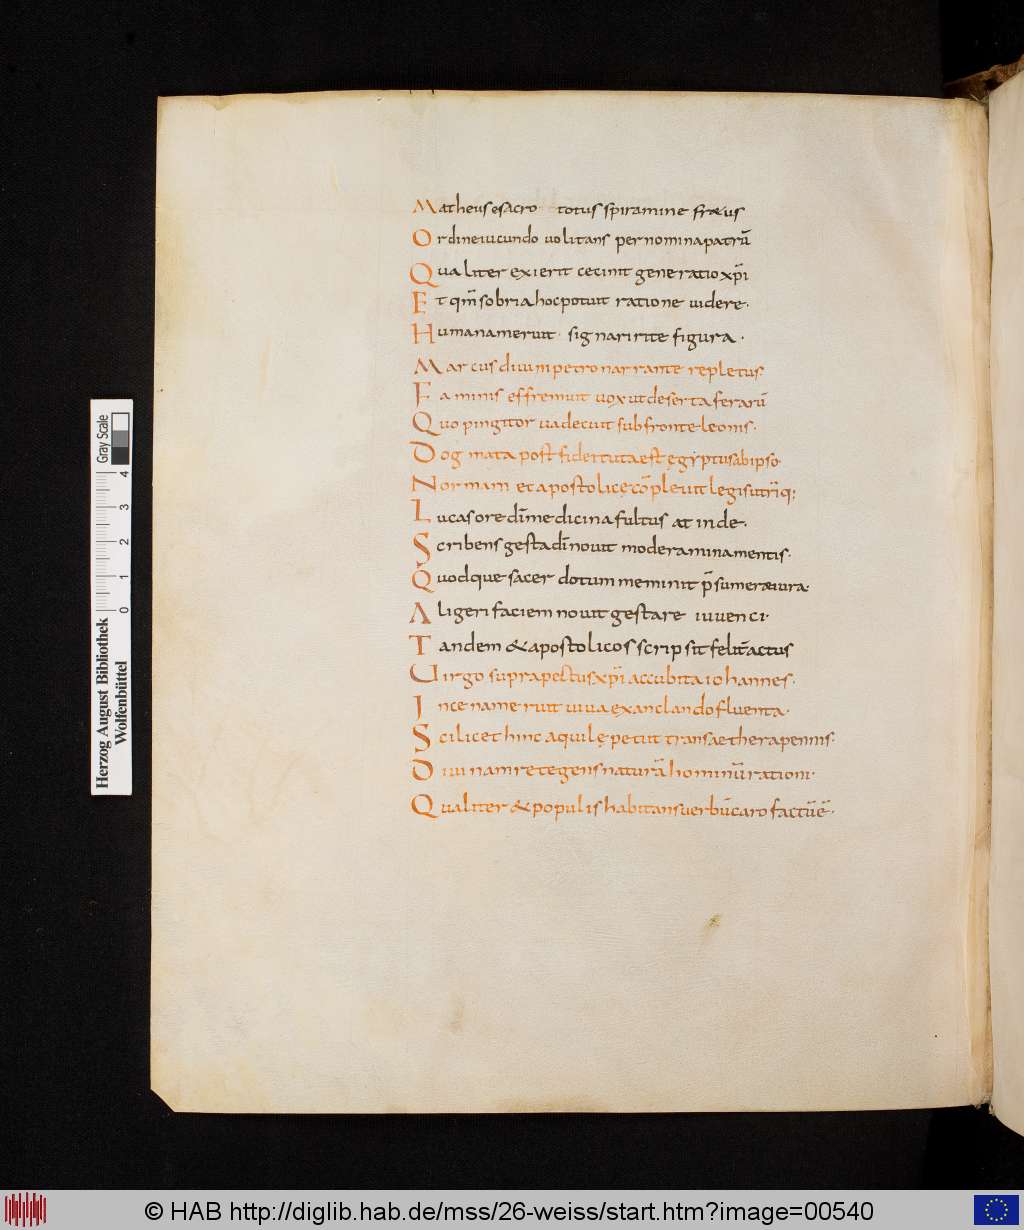 Matheus e sacro totus spiramine frætus
Ordine iucundo uolitans per nomina patrū
Qualiter exierit cecinit generatio xp̄i
Et qm̄ sobria hoc potuit ratione uidere·
Humana meruit· signari rite figura·
Marcus diuum petro narrante repletus
Faminis effremuit uox ut deserta ferarū
Quo pingitor uadecuit sub fronte leonis·
Dogmata post fidei tuta est egyptus ab ipso·
Normam et apostolicę cōpleuit legis utriq;
Lucas ore dīmedicina fultus at inde·
Scribens gesta dn̄i nouit moderamina mentis·
Quodque sacer dotum meminit p̄sumeræ iura·
Aligeri faciem nouit gestare iuuenci·
Tandem & apostolicos scripsit feliciter actus
Uirgo supra pectus xp̄i accubita iohannes·
Ince name ruit uiua exanclando fluenta·
Scilicet hinc aquilę petiit transaethera pennis·
Diuinam retegens naturā hominū rationi·
Qualiter & populis habitans uerbū caro factū ē·
Herzog August Bibliothek
Wolfenbüttel
Gray Scale
0 1 2 3 4
© HAB http://diglib.hab.de/mss/26-weiss/start.htm?image=00540